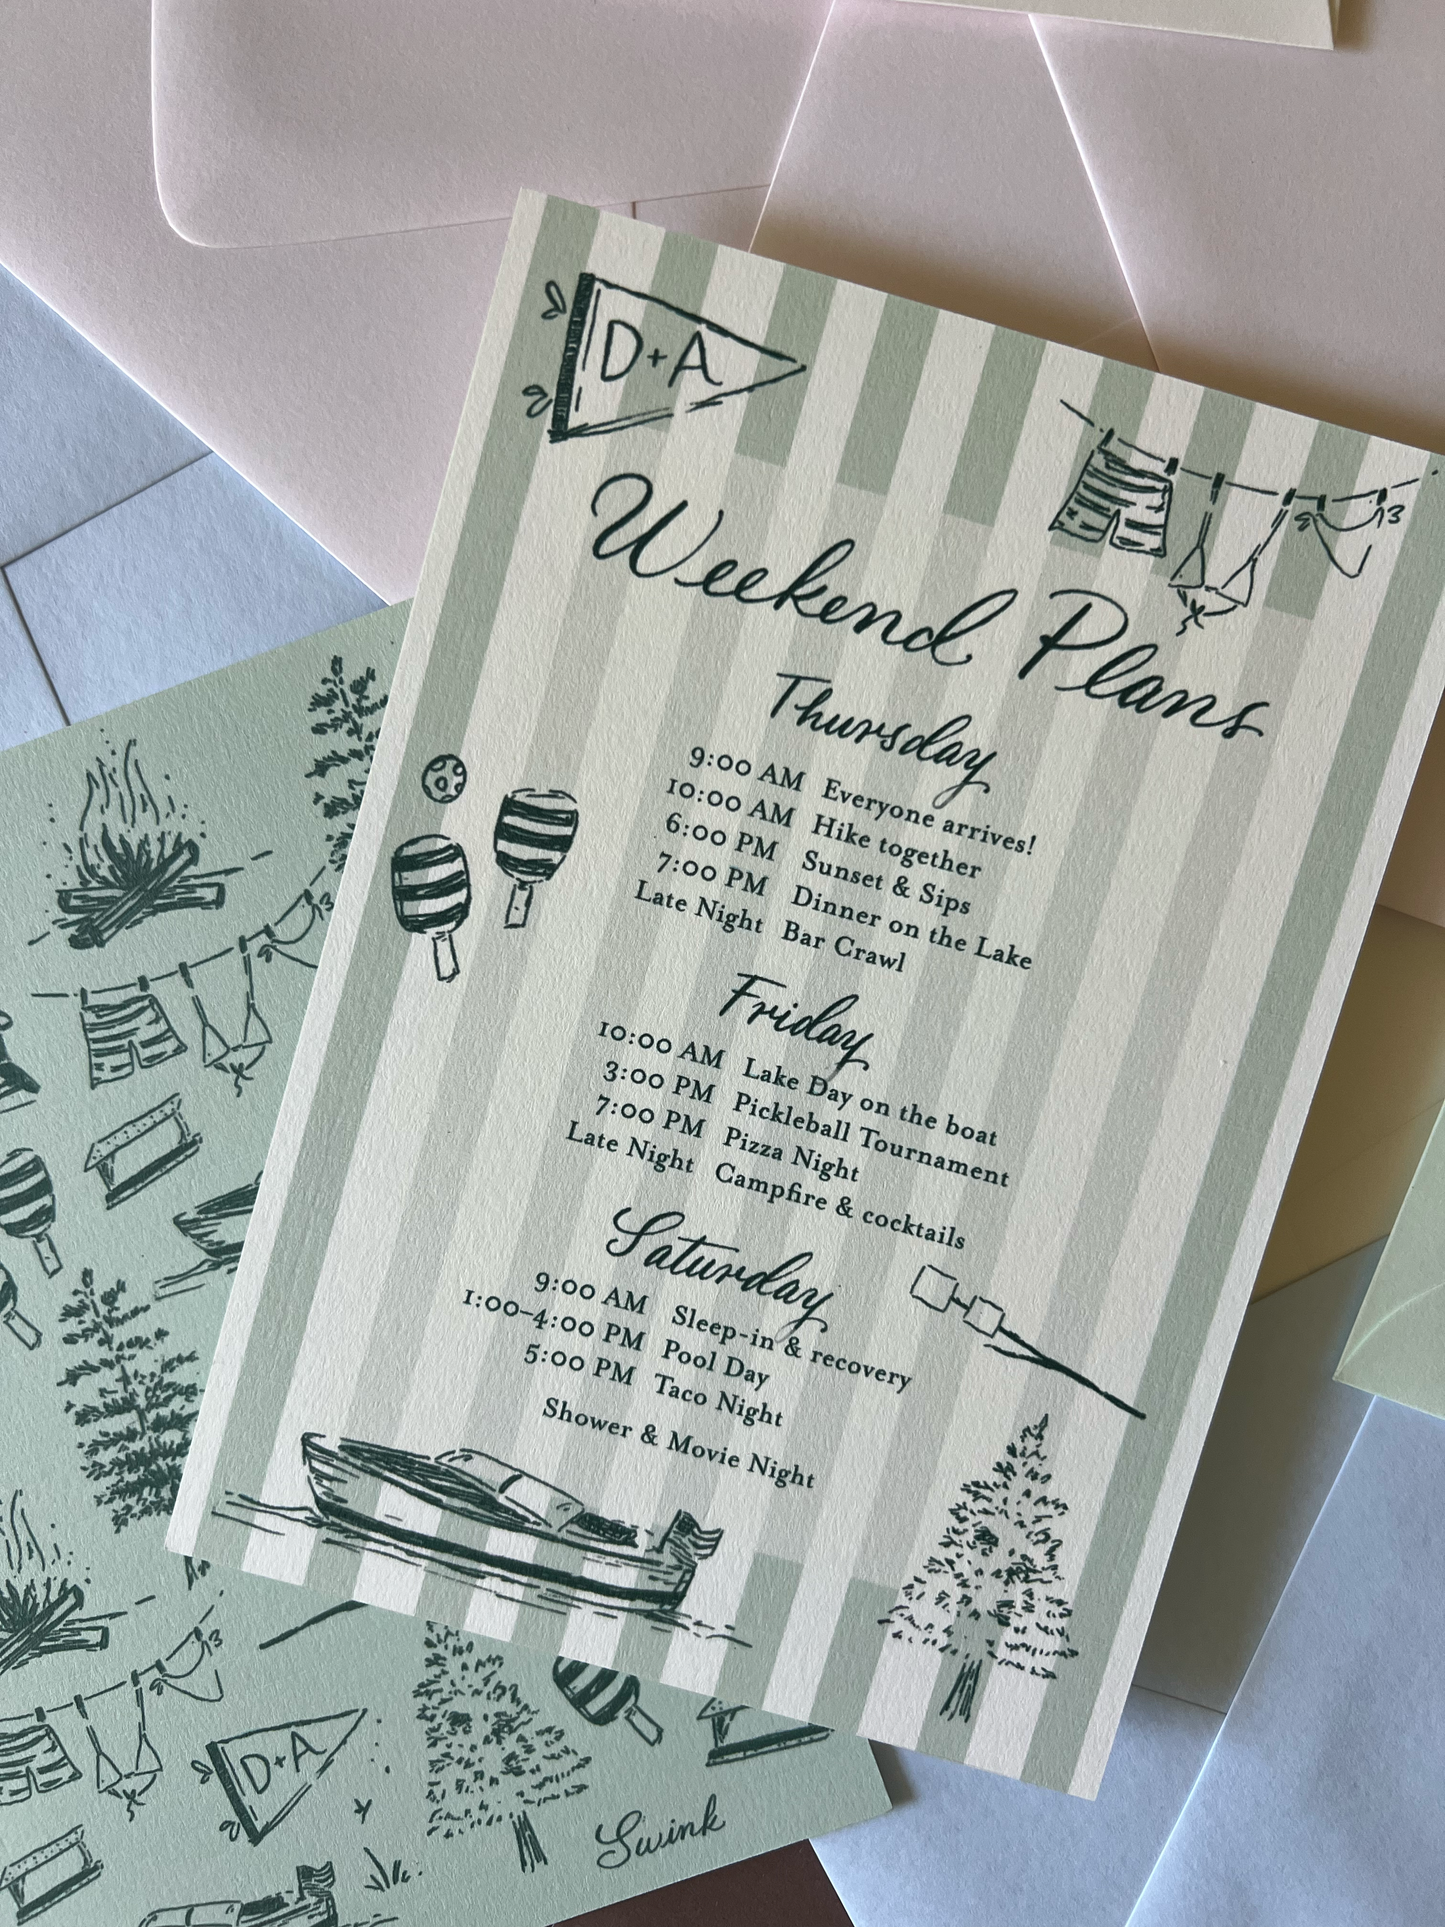 D+A
Weekend Plans
Thursday
9:00 AM Everyone arrives!
10:00 AM Hike together
6:00 PM Sunset & Sips
7:00 PM Dinner on the Lake
Late Night Bar Crawl
Friday
10:00 AM Lake Day on the boat
3:00 PM Pickleball Tournament
7:00 PM Pizza Night
Late Night Campfire & cocktails
Saturday
9:00 AM Sleep-in & recovery
1:00–4:00 PM Pool Day
5:00 PM Taco Night
Shower & Movie Night
D+A
Swink